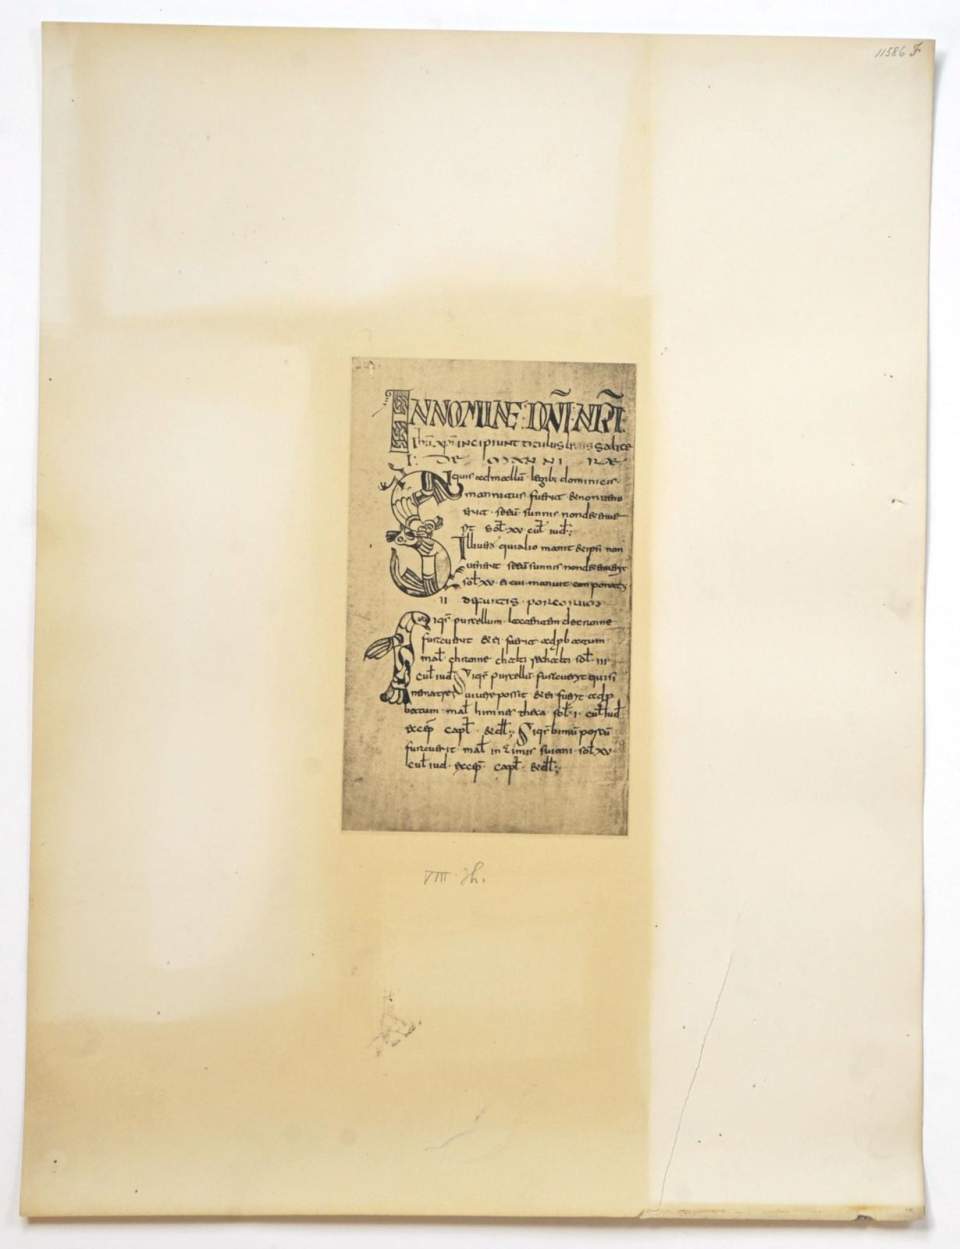 11586 F
IN NOMINE DÑI NRĨ
incipiunt titulus legis salice
I DE MANNIRE
Siquis ad mallū legib; dominicis
mannitus fuerit & non uene
rit si eū sunnis non detenue
rit sol xv cul iud
Ille uero qui alio manit & ipse non
uenerit si eū sunnis non detenuerit
sol xv ei cui manuit conponat
II de furtis porcorum
Siqs purcellum lactantem de cranne
furauerit & ei fuerit adpbatum
mal chranne sol III
cul iud Siqs purcellū furauerit qui sine
matre uiuere possit & ei fuerit adp
batum mal himnes theca sol I cul iud
excep capl & dil Siqs bimū porcū
furauerit mal in zimis suiani sol xv
cul iud excep capl & dil
VIII Jh.